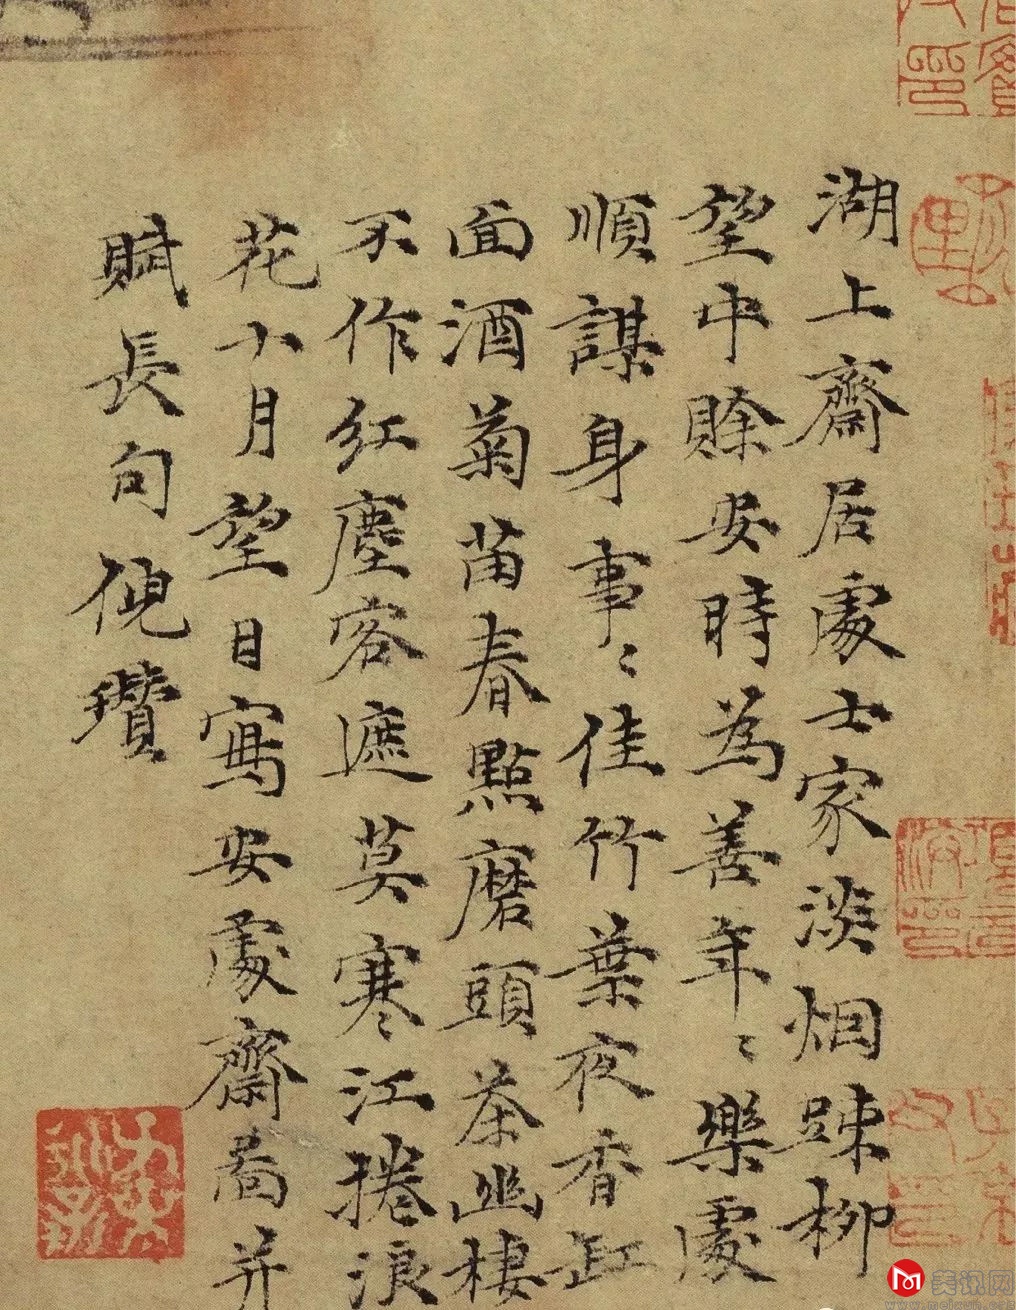 湖上齋居處士家淡烟踈柳
望中賒安時為善年〻樂處
順謀身事〻佳竹葉夜香缸
面酒菊苗春點磨頭茶幽棲
不作紅塵客遮莫寒〻江捲浪
花十月望日寫安處齋啚并
賦長句倪瓚
美讯网